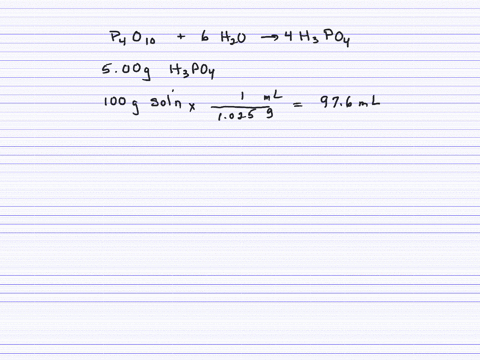 P₄O₁₀ + 6 H₂O → 4 H₃PO₄
5.00g H₃PO₄
100g sol'n x 1 mL / 1.025 g = 97.6 mL